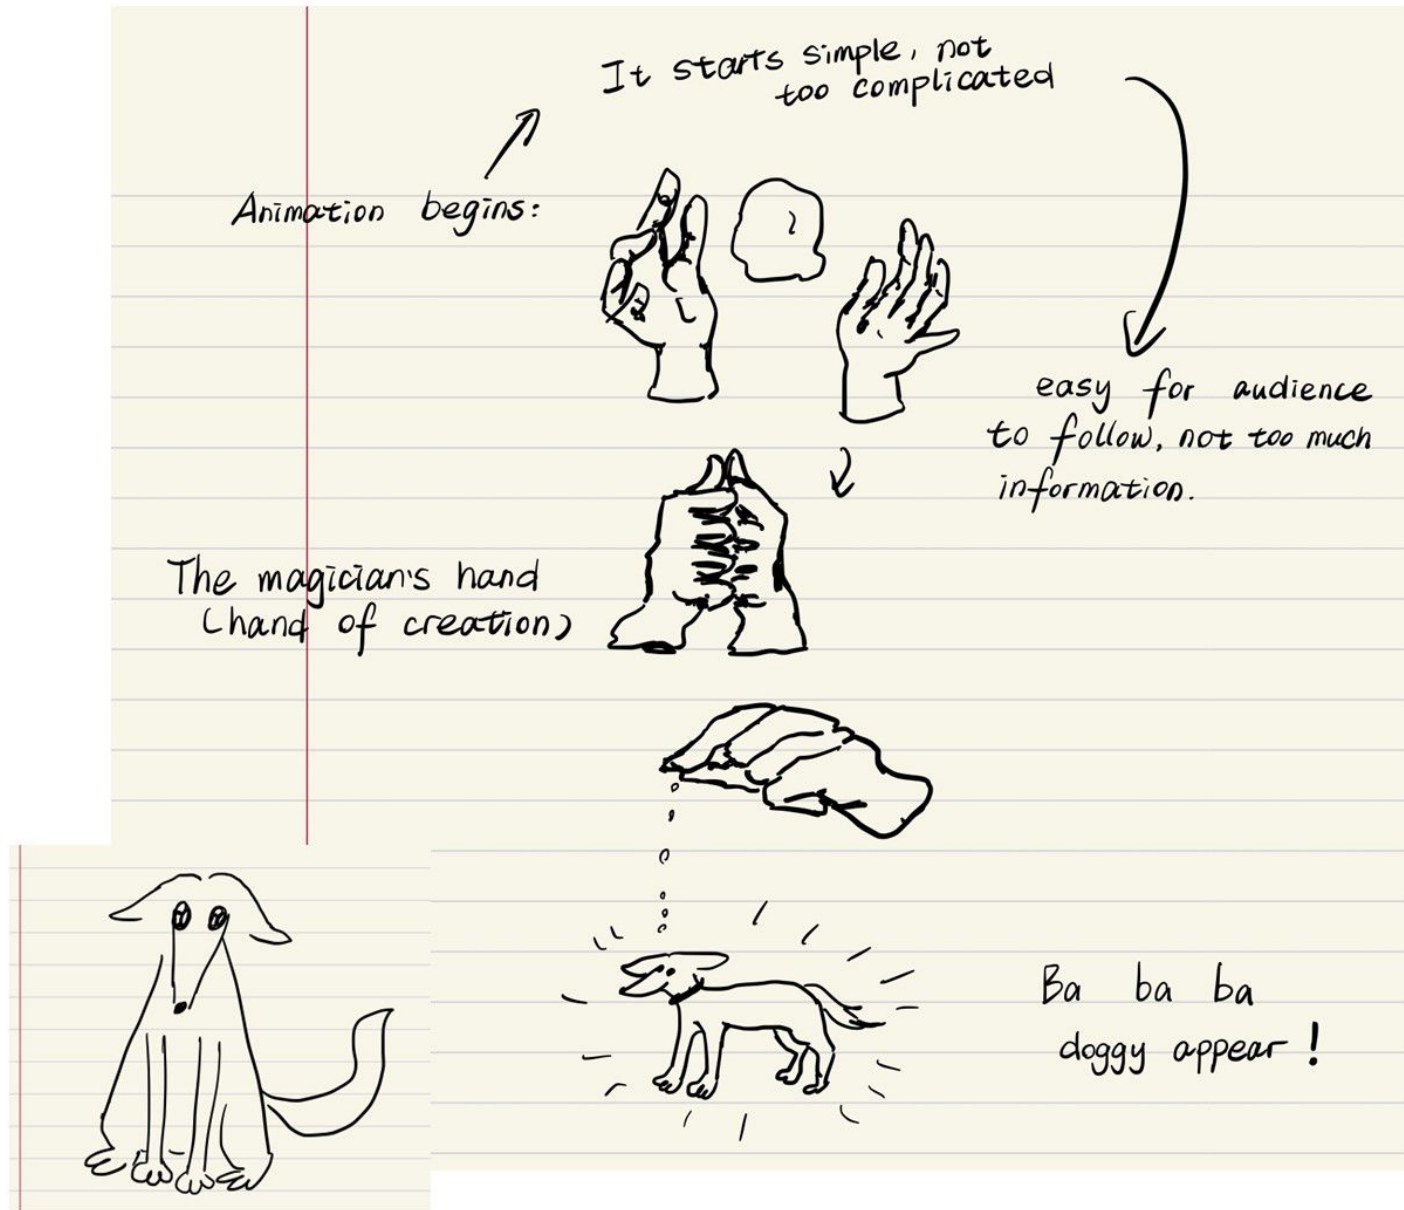 It starts simple, not
too complicated
Animation begins:
easy for audience
to follow, not too much
information.
The magician's hand
(hand of creation)
Ba ba ba
doggy appear!